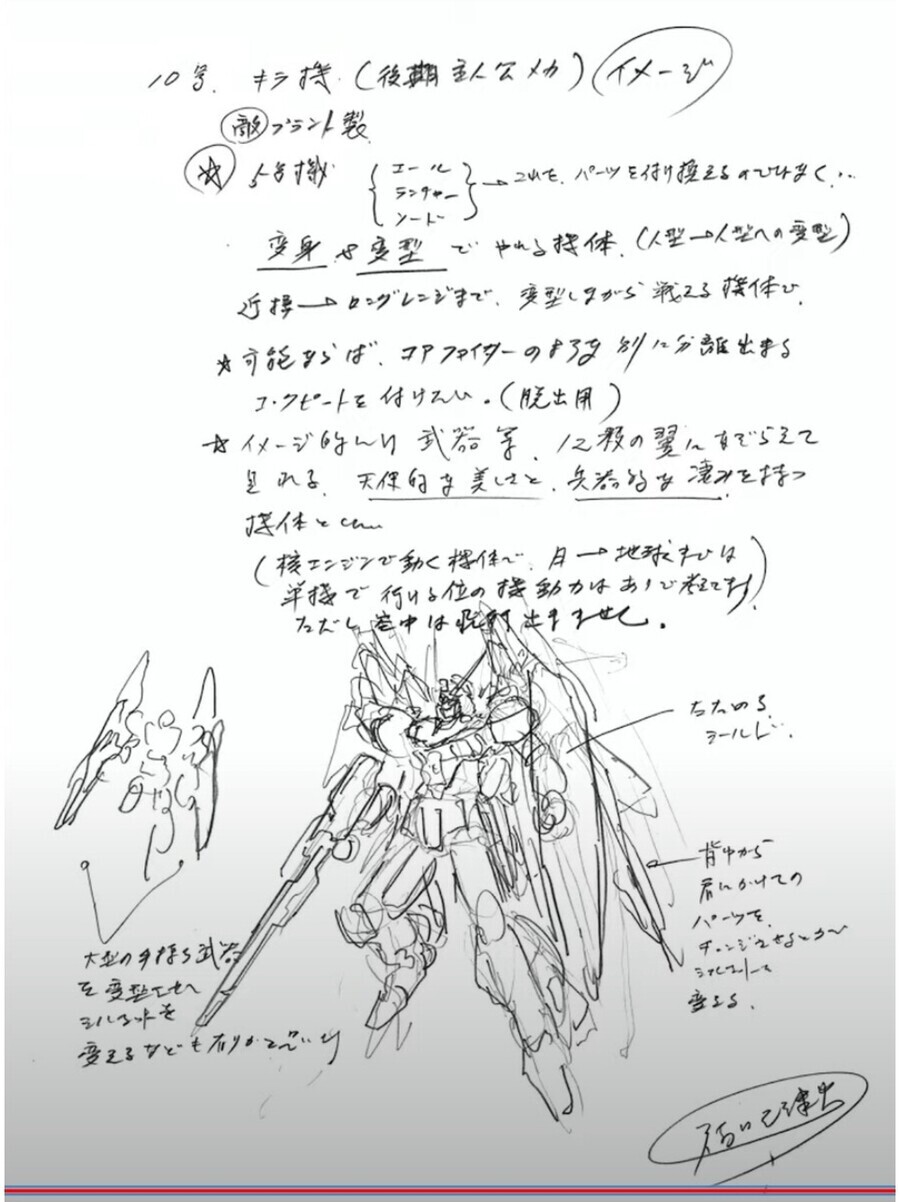 10号. キラ機.(後期主人公メカ) イメージ
敵プラント製
☆ 5号機 { エール
ランチャー
ソード } → これを、パーツを付け換えるのではなく、..
変身や変型でやれる機体.(人型→人型への変型)
近接→ロングレンジまで、変型しながら戦える機体で.
☆可能ならば、コアファイターのような別に分離出来る
コックピートを付けたい。(脱出用)
☆イメージ的には武器等、12枚の翼になぞらえて
見れる、天使的な美しさと、兵器的な凄みを持つ
機体としたい
(核エンジンで動く機体で、月→地球までは
単機で行ける位の機動力はありで考えてます)
ただし空中は飛行出来ません。
たためる
シールド.
背中から
肩にかけての
パーツを、
チェンジさせるとかで
シルエットを
変える.
大型の手持ち武器
を変型させ
シルエットを
変えるなども有りかと思います